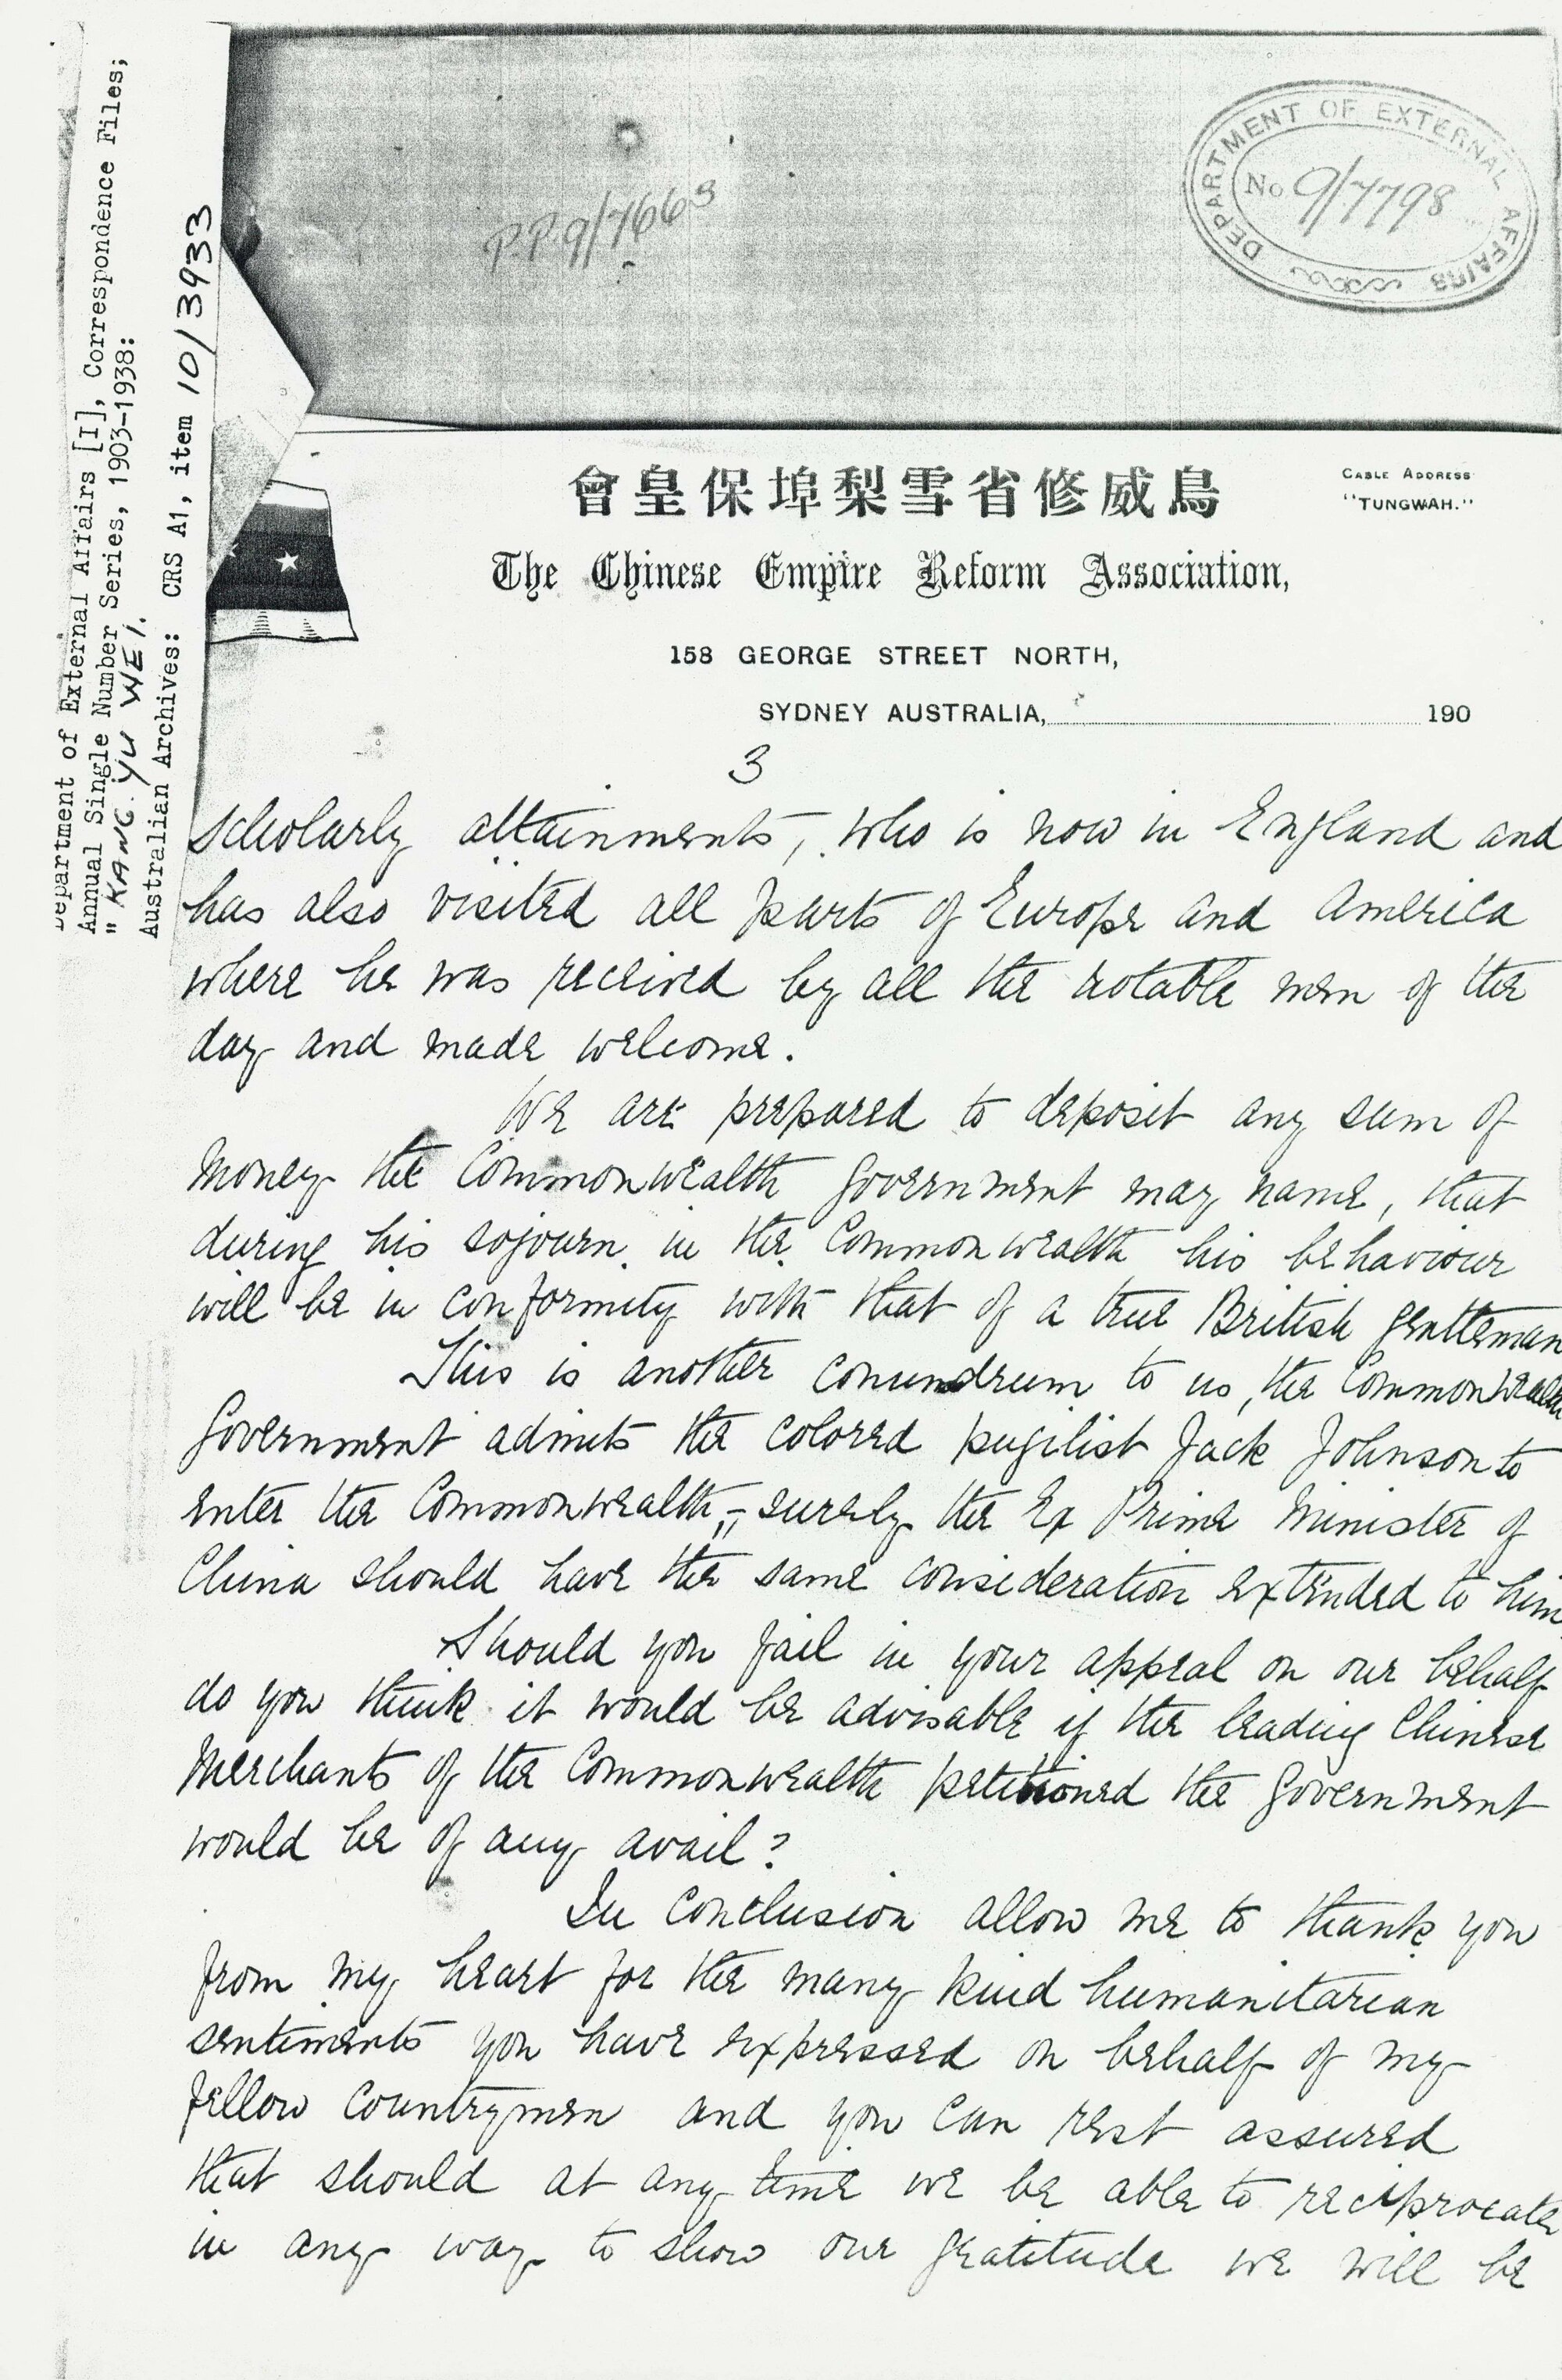 Department of External Affairs [I], Correspondence Files;
Annual Single Number Series, 1903-1938:
"KANG YU WEI.
Australian Archives: CRS A1, item 10/3933
P.P. 9/7663
DEPARTMENT OF EXTERNAL AFFAIRS
No 9/7798
會皇保埠梨雪省修威鳥
CABLE ADDRESS
"TUNGWAH."
The Chinese Empire Reform Association,
158 GEORGE STREET NORTH,
SYDNEY AUSTRALIA, 190
3
scholarly attainments, who is now in England and
has also visited all parts of Europe and America
where he was received by all the notable men of the
day and made welcome.
We are prepared to deposit any sum of
money the Commonwealth Government may name, that
during his sojourn in the Commonwealth his behaviour
will be in conformity with that of a true British gentleman
This is another conundrum to us, the Commonwealth
Government admits the colored pugilist Jack Johnson to
enter the Commonwealth, – surely the Ex Prime Minister of
China should have the same consideration extended to him
Should you fail in your appeal on our behalf
do you think it would be advisable if the leading Chinese
Merchants of the Commonwealth petitioned the Government
would be of any avail?
In conclusion allow me to thank you
from my heart for the many kind humanitarian
sentiments you have expressed on behalf of my
fellow countrymen and you can rest assured
that should at any time we be able to reciprocate
in any way to show our gratitude we will be